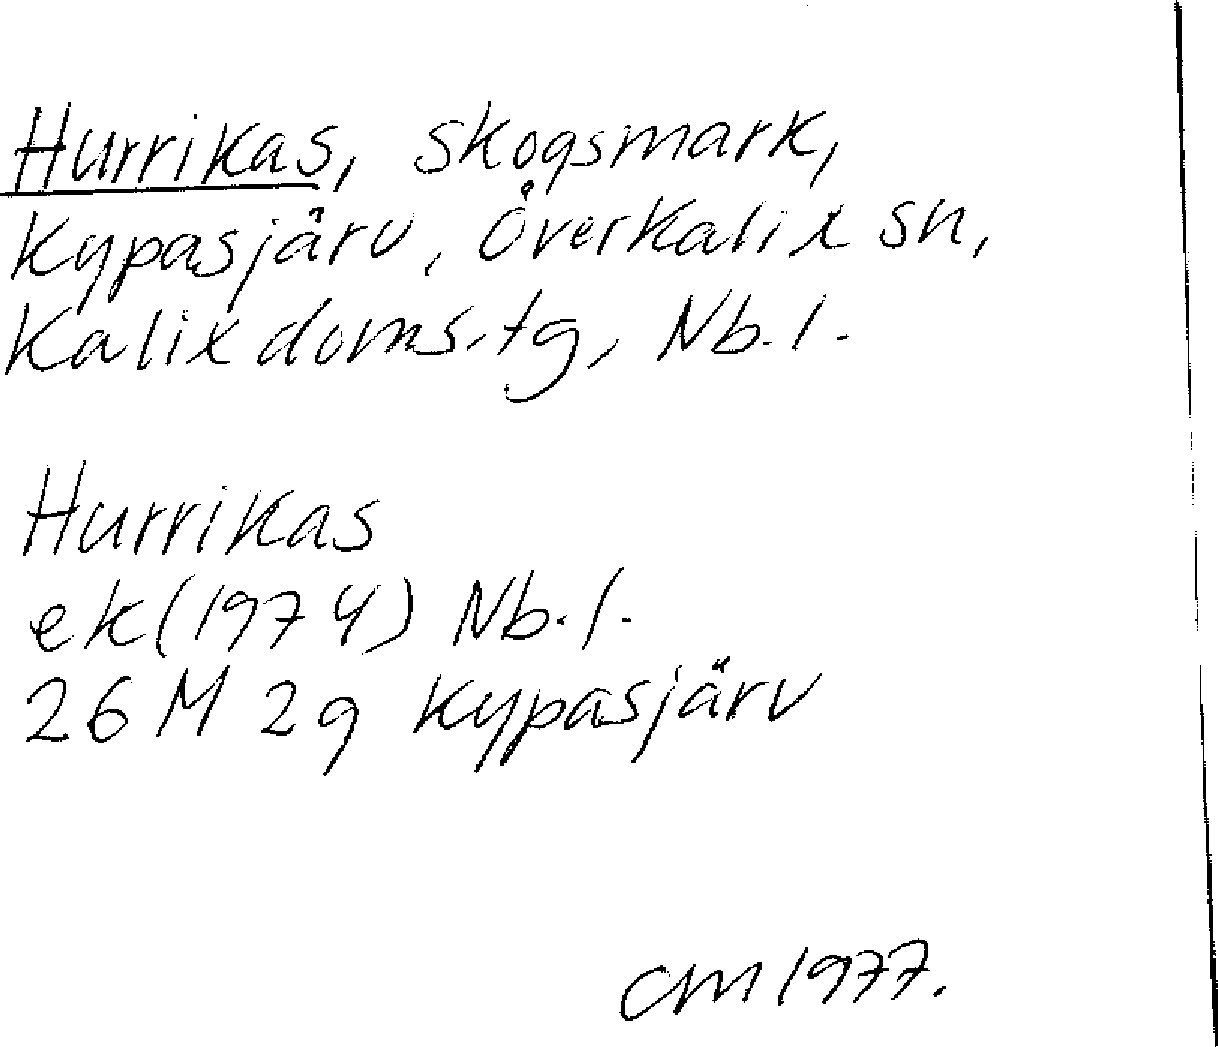 Hurrikas, skogsmark,
Kypasjärv, Överkalix sn,
Kalix doms.tg, Nb.l.
Hurrikas
ek (1974) Nb.l.
26 M 2g Kypasjärv
CM 1977.